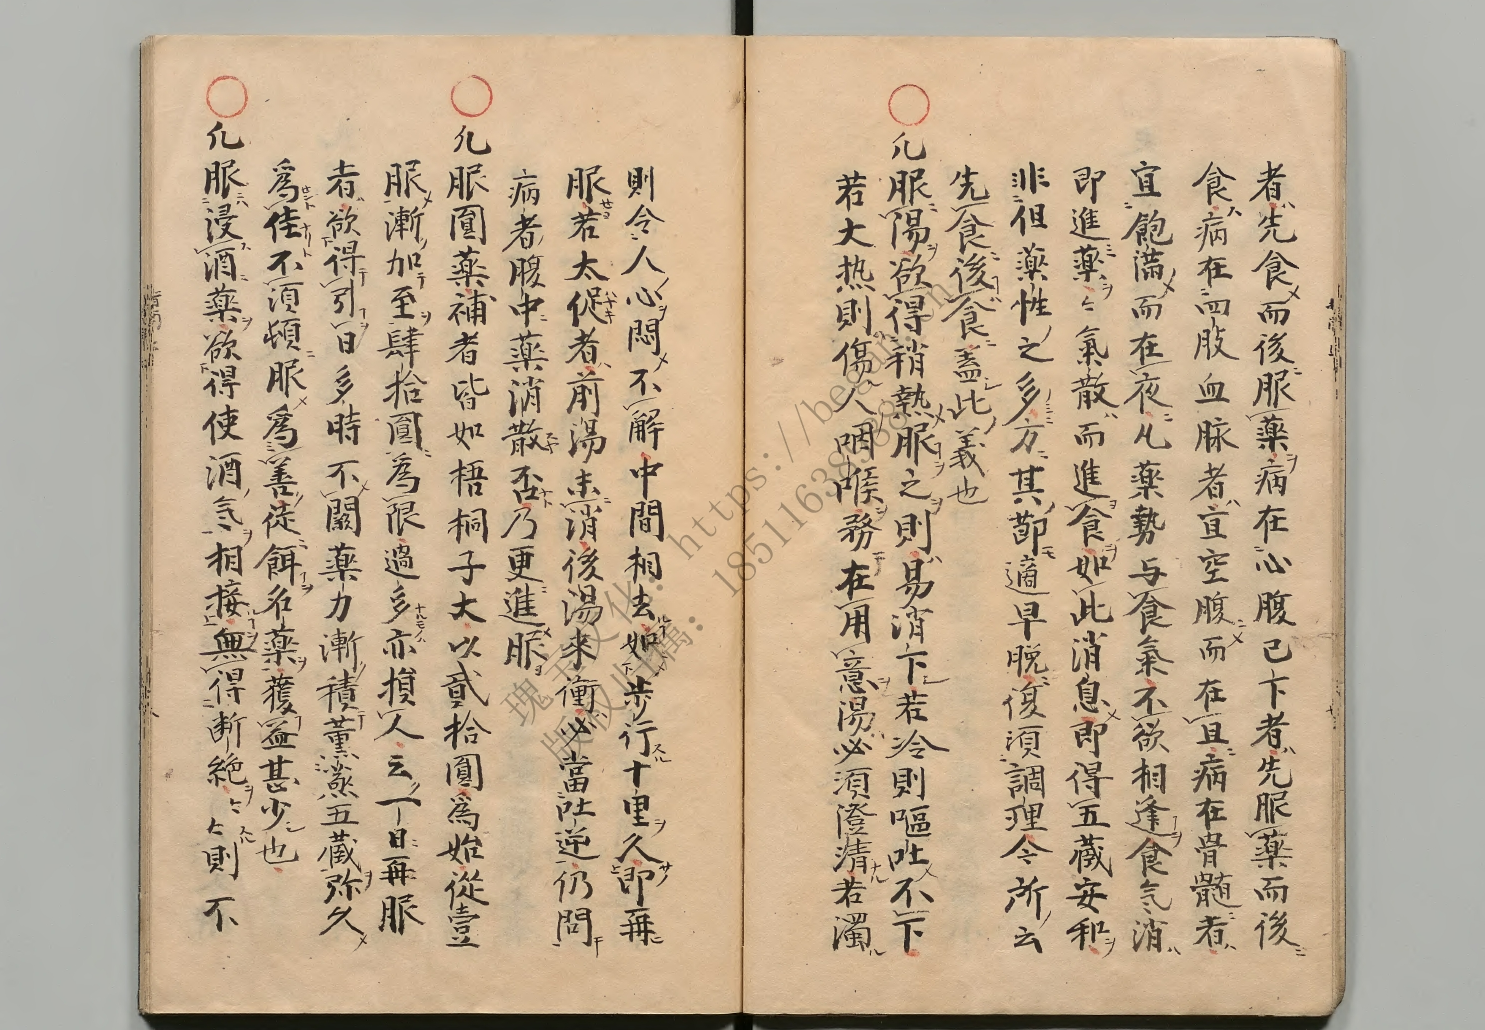 者先食而後服藥病在心腹已下者先服藥而後
食病在四肢血脉者宜空腹而在旦病在骨髓者
宜飽滿而在夜凡藥勢与食氣不欲相逢食气消
即進藥〻氣散而進食如此消息即得五藏安和
非但藥性之多方其節適早晚復須調理今所云
先食後食蓋此義也
凡服湯欲得稍熱服之則易消下若冷則嘔吐不下
若大热則傷人咽喉務在用意湯必須澄清若濁
則令人心悶不解中間相去如步行十里久即再
服若太促者前湯未消後湯来衝必當吐逆仍問
病者腹中藥消散否乃更進服
凡服圓藥補者皆如梧桐子大以貳拾圓為始從壹
服漸加至肆拾圓為限過多亦損人云一日再服
者欲得引日多時不闕藥力漸積薰蒸五藏弥久
為佳不須頓服為善徒餌名藥獲益甚少也
凡服浸酒藥欲得使酒气相接無得断絶〻〻則不
瑰宝文化：https://beg
版权归属：18511638388